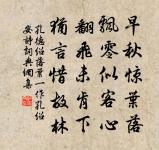 早秋惊葉落
飄零似客心
翻飛未肯下
猶言惜故林
孔德绍落葉一作孔绍
安詩詞典網集